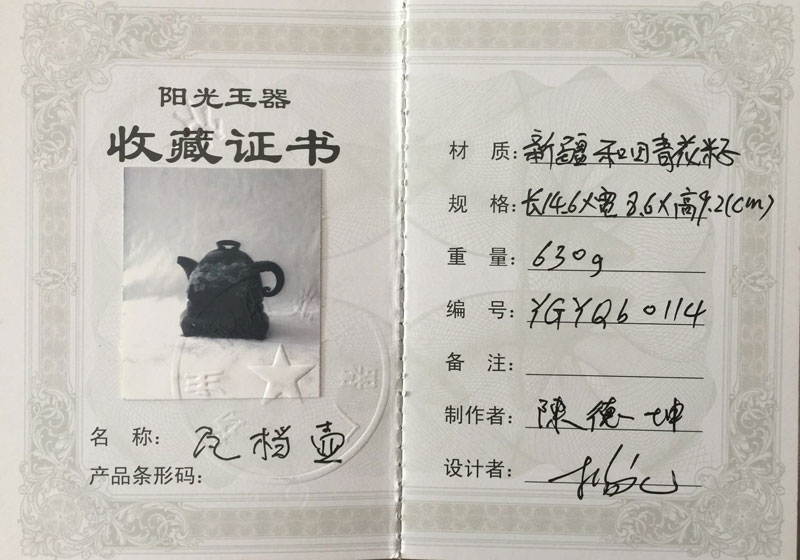 阳光玉器
收藏证书
名 称: 瓦档壶
产品条形码:
材 质: 新疆和田青花籽
规 格: 长14.6X宽8.6X高9.2(cm)
重 量: 630g
编 号: YGYQb0114
备 注:
制作者: 陳德坤
设计者: